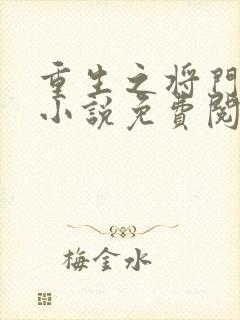 重生之将門
小説免費閱
梅金水